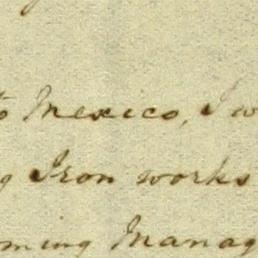 to Mexico, I w
g Iron works
ming Manag